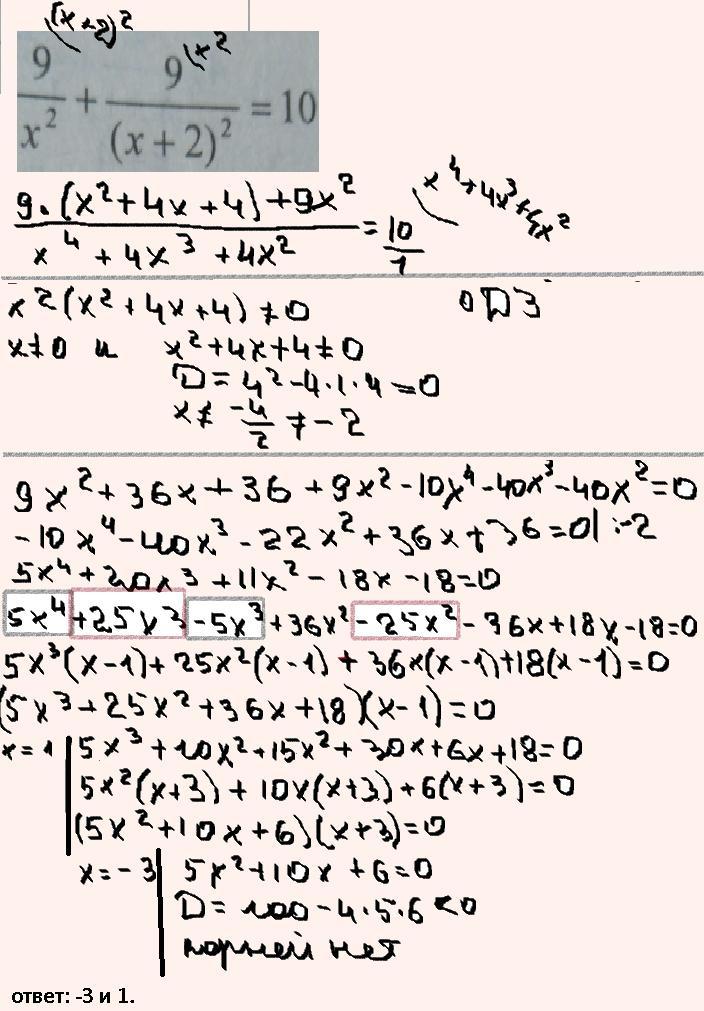 (x+2)²
9/x² + 9(x²/(x+2)² = 10
9·(x²+4x+4)+9x²/x⁴+4x³+4x² = 10/1 x⁴+4x³+4x²
x²(x²+4x+4)≠0 ОДЗ
x≠0 и x²+4x+4≠0
D=4²-4·1·4=0
x≠ -4/2 ≠ -2
9x²+36x+36+9x²-10x⁴-40x³-40x²=0
-10x⁴-40x³-22x²+36x+36=0|:-2
5x⁴+20x³+11x²-18x-18=0
5x⁴+25x³-5x³+36x²-25x²-36x+18x-18=0
5x³(x-1)+25x²(x-1)+36x(x-1)+18(x-1)=0
(5x³+25x²+36x+18)(x-1)=0
x=1 5x³+10x²+15x²+30x+6x+18=0
5x²(x+3)+10x(x+3)+6(x+3)=0
(5x²+10x+6)(x+3)=0
x=-3 5x²+10x+6=0
D=100-4·5·6<0
корней нет
ответ: -3 и 1.